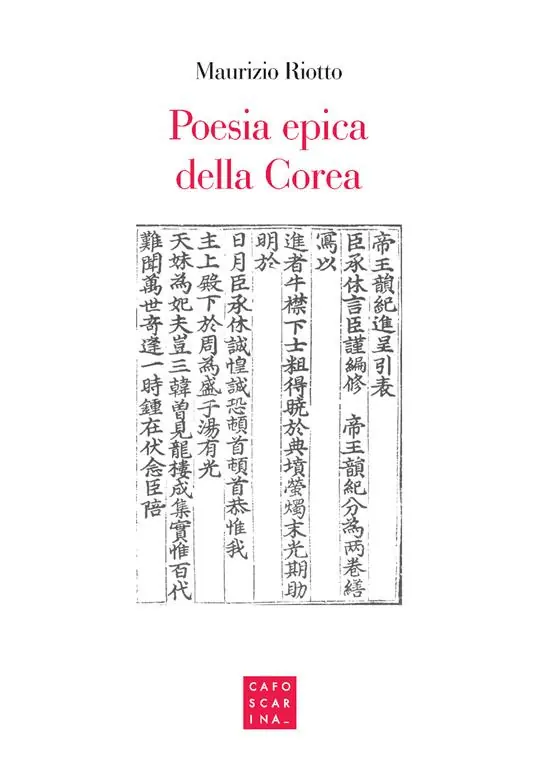 Maurizio Riotto
Poesia epica
della Corea
帝王韻紀進呈引表
臣承休言臣謹編修 帝王韻紀分為两卷繕
寫以
進者牛襟下士粗得曉於典墳螢燭末光期助
明於
日月臣承休誠惶誠恐頓首頓首恭惟我
主上殿下於周為盛于湯有光
天妹為妃夫豈三韓曾見龍樓成集實惟百代
難聞萬世竒逢一時鍾在伏念臣陪
CAFO
SCAR
INA_